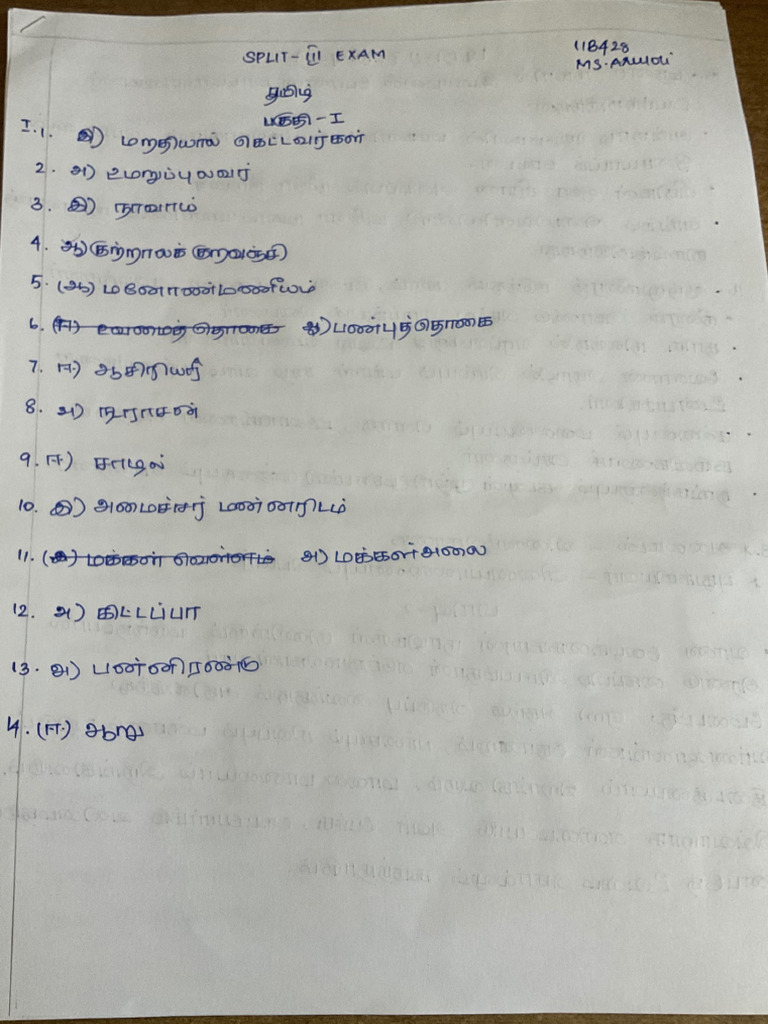 SPLIT-III EXAM
11B428
MS.
தமிழ்
பகுதி - I
I.1. இ) மறதியால் கெட்டவர்கள்
2. அ) உமறுப்புலவர்
3. இ) நாவாய்
4. ஆ) குற்றாலக் குறவஞ்சி)
5. (ஆ) மனோண்மணீயம்
6. (ஈ) உவமைத் தொகை ஆ) பண்புத்தொகை
7. ஈ) ஆசிரியரீ
8. அ)
9. ஈ)
10. இ) அமைச்சர் மன்னரிடம்
11. (ஆ) மக்கள் வெள்ளம் அ) மக்கள் அலை
12. அ) கிட்டப்பா
13. அ) பன்னிரண்டு
14. (ஈ) ஆறு